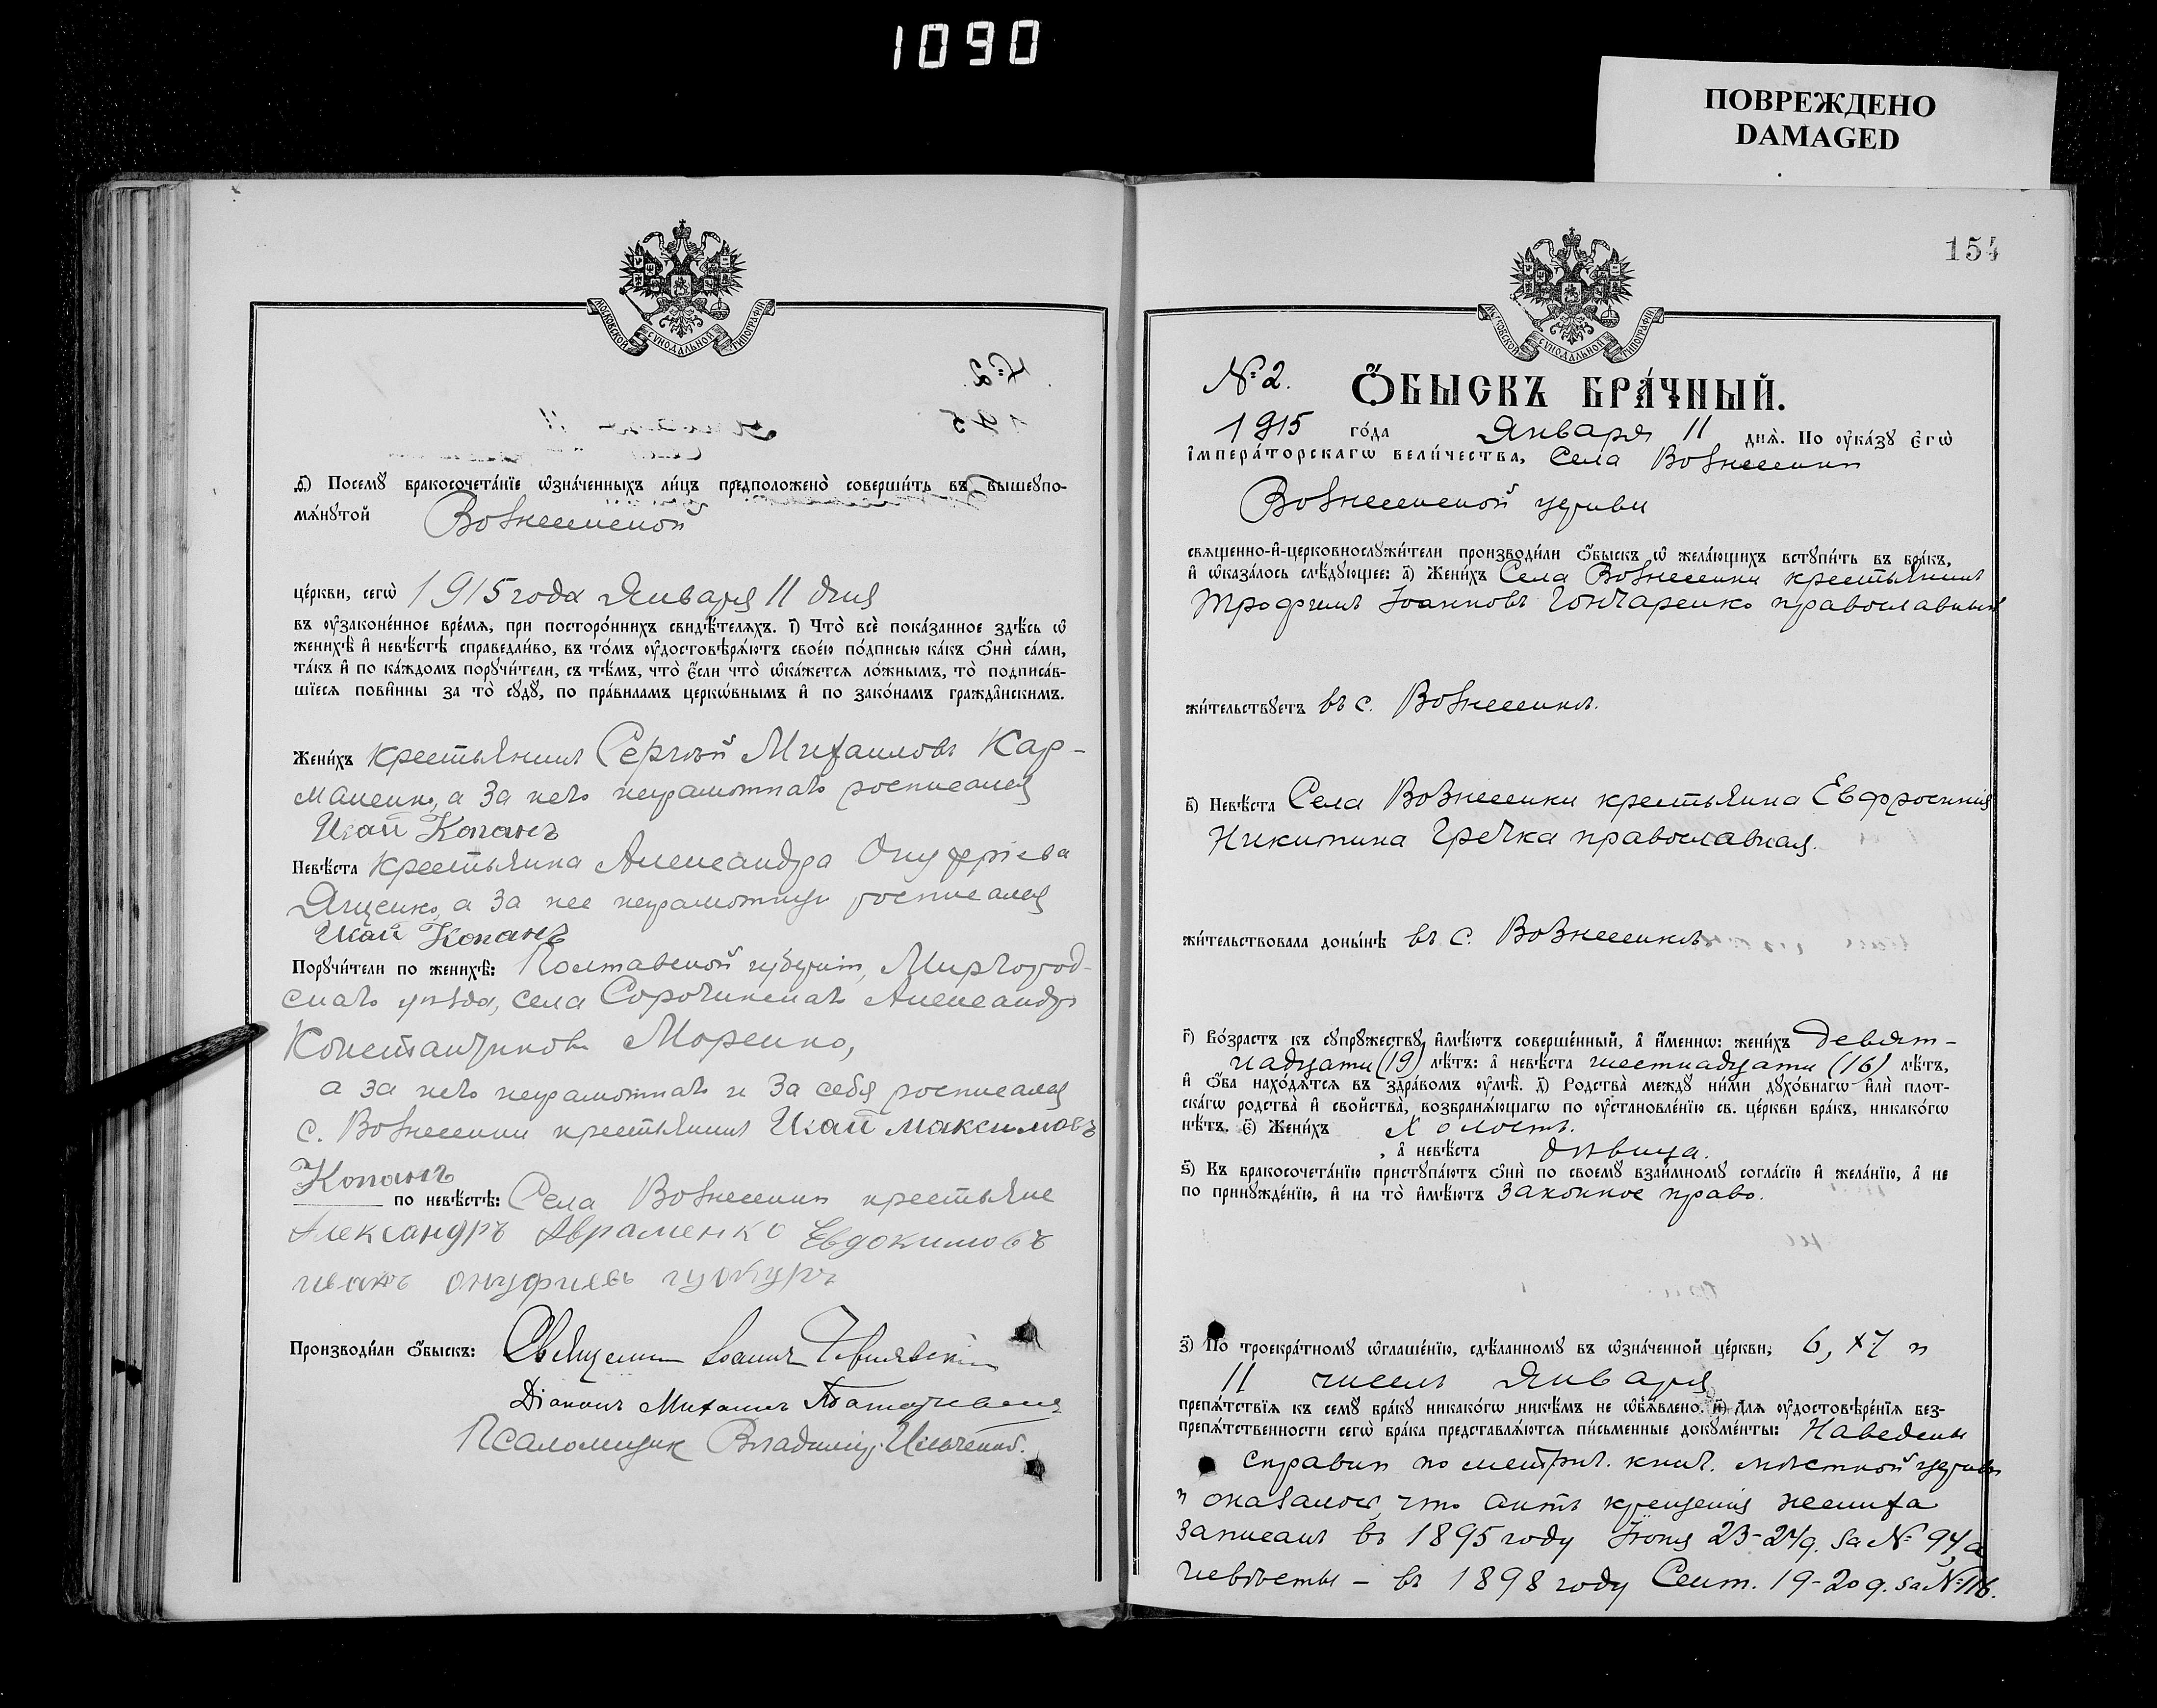 1090
ПОВРЕЖДЕНО
DAMAGED
МОСКОВСКОЙ СУНОДАЛЬНОЙ ТИПОГРАФІИ
Посемꙋ бракосочета́нїе ѡ҆зна́ченныхъ ли́цъ предположено̀ соверши́ть въ вышеупо-
мѧ́нꙋтой Вознесенской
це́ркви, сегѡ̀ 1915 года Января 11 дня
въ ᲂу҆законе́нное вре́мѧ, при посторо́ннихъ свидѣ́телѧхъ. і҃) Что̀ всѐ пока́занное здѣ́сь ѡ҆
женихѣ̀ и҆ невѣ́стѣ справедли́во, въ то́мъ ᲂу҆достовѣрѧ́ютъ свое́ю по́дписью ка́къ ѻ҆нѝ са́ми,
та́къ и҆ по ка́ждомъ порꙋчи́тели, съ тѣ́мъ, что̀ є҆́сли что̀ ѡ҆ка́жетсѧ ло́жнымъ, то̀ подписа́в-
шїесѧ пови́нны за то̀ сꙋдꙋ̀, по пра́виламъ церкѡ́внымъ и҆ по зако́намъ гражда̂нскимъ.
Жени́хъ крестьянинъ Сергѣй Михаиловъ Кар-
маненко, а за него неграмотнаго росписался
Исай Копанъ
Невѣ́ста крестьянка Александра Онуфріева
Яценко, а за нее неграмотную росписался
Исай Копанъ
Порꙋчи́тели по женихѣ̀: Полтавской губерніи, Миргород-
скаго уѣзда, села Сорочинскаго Александръ
Константиновъ Моренко,
а за него неграмотнаго и за себя росписался
с. Вознесенки крестьянинъ Исай Максимовъ
Копанъ
по невѣ́стѣ: Села Вознесенки крестьяне
Александръ Авраменко Евдокимовъ
иванъ онуфриевъ
Производи́ли ѻ҆́быскъ: Священникъ Іоаннъ
Діаконъ Михаилъ
Псаломщик Владимір Ильченко.
154
МОСКОВСКОЙ СУНОДАЛЬНОЙ ТИПОГРАФІИ
№ 2. Ѻ҆́БЫСКЪ БРА́ЧНЫЙ.
1915 го́да Января 11 днѧ̀. По ᲂу҆ка́зꙋ є҆гѡ̀
і҆мпера́торскагѡ вели́чества, Села Вознесенки
Вознесенской церкви
свѧщенно-и҆-церковнослꙋжи́тели производи́ли ѻ҆́быскъ ѡ҆ жела́ющихъ встꙋпи́ть въ бра́къ,
и҆ ѡ҆каза́лось слѣ́дꙋющее: а҃) Жени́хъ Села Вознесенки крестьянинъ
Трофимъ Іоанновъ Гончаренко православный
жи́тельствꙋетъ въ с. Вознесенкѣ.
в҃) Невѣ́ста Села Вознесенки крестьянка Евфросинія
Никитина Гречка православная.
жи́тельствовала доны́нѣ въ с. Вознесенкѣ
г҃) Во́зрастъ къ сꙋпрꙋ́жествꙋ и҆мѣ́ютъ соверше́нный, а҆ и҆́менно: жени́хъ девят-
надцати (19) лѣ́тъ: а҆ невѣ́ста шестнадцати (16) лѣ́тъ,
и҆ ѻ҆́ба нахо́дѧтсѧ въ здра́вомъ ᲂу҆мѣ̀. д҃) Родства̀ междꙋ ни́ми дꙋхо́внагѡ и҆лѝ плот-
ска́гѡ родства̀ и҆ свойства̀, возбранѧ́ющагѡ по ᲂу҆становле́нїю св. це́ркви бра́къ, никако́гѡ
нѣ́тъ. є҃) Жени́хъ холостъ.
, а҆ невѣ́ста дѣвица.
ѕ҃) Къ бракосочета́нїю пристꙋпа́ютъ ѻ҆нѝ по своемꙋ̀ взаи́мномꙋ согла́сїю и҆ жела́нїю, а҆ не
по принꙋжде́нїю, и҆ на то̀ и҆мѣ́ютъ законное право.
з҃) По троекра́тномꙋ ѡ҆глаше́нїю, сдѣ́ланномꙋ въ ѡ҆зна́ченной це́ркви, 6, 7 и
11 чиселъ Января
препѧ́тствїѧ къ семꙋ̀ бра́кꙋ никако́гѡ никѣ́мъ не ѡ҆б̾ѧ́влено. и҃) Длѧ ᲂу҆достовѣре́нїѧ без-
препѧ́тственности сегѡ̀ бра́ка представлѧ́ютсѧ пи́сьменные докꙋме́нты: Наведены
справки по метрич. книг. мѣстной церкви
и оказалось, что актъ крещенія жениха
записанъ въ 1895 году Іюня 23-24 д. за № 94, а
невѣсты – въ 1898 году Сент. 19-20 д. за № 116.